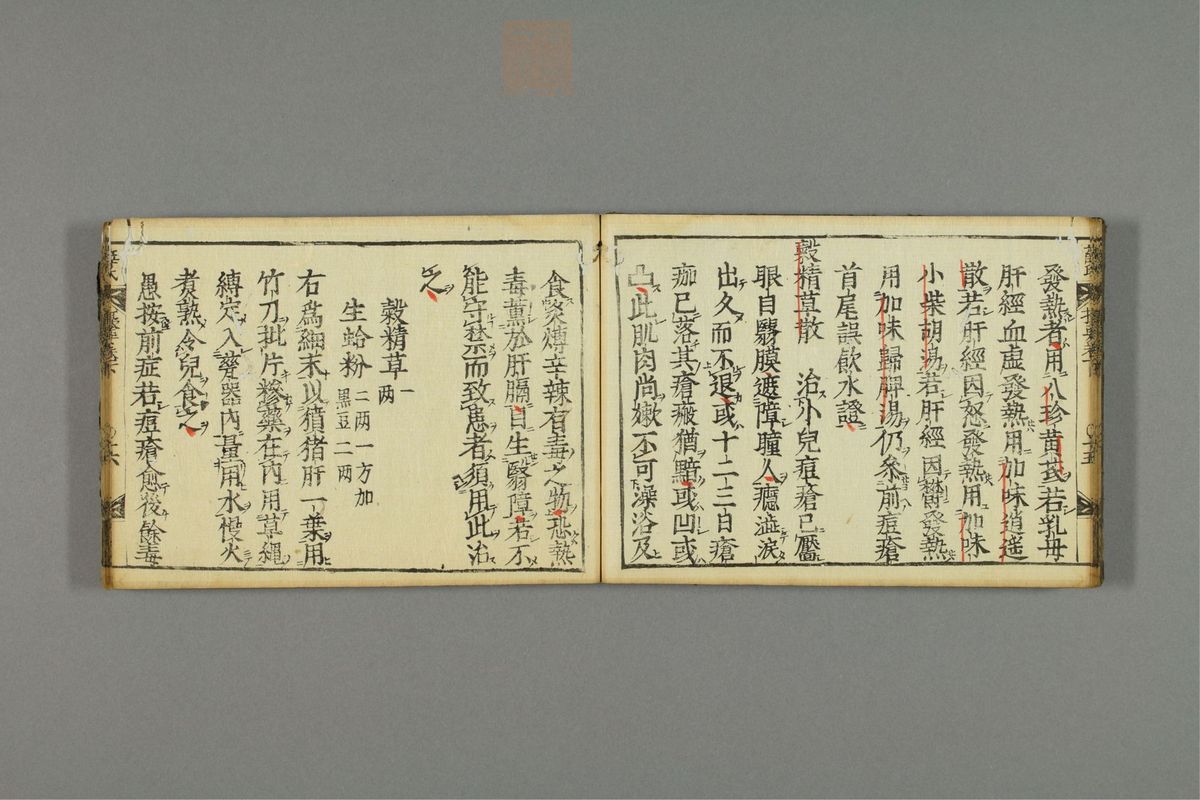 發熱者用八珍黃芪若乳母
肝經血虛發熱用加味逍遥
散若肝經因怒發熱用加味
小柴胡湯若肝經因欝發熱
用加味歸脾湯仍叅前痘瘡
首尾誤飲水證
穀精草散 治小兒痘瘡已靨
眼目翳膜遮障瞳人癮澁淚
出久而不退或十二三日瘡
痂已落其瘡瘢猶黯或凹或
凸此肌肉尚嫩不可澡浴及
食炙煿辛辣有毒之物恐熱
毒薰於肝膈目生翳障若不
能守禁而致患者須用此治
之
穀精草 一两
生蛤粉 二两一方加黑豆二两
右爲細末以獖猪肝一葉用
竹刀批片糝藥在內用草繩
縛定入甆器內量用水慢火
煮熟令兒食之
愚按前症若痘瘡愈後餘毒